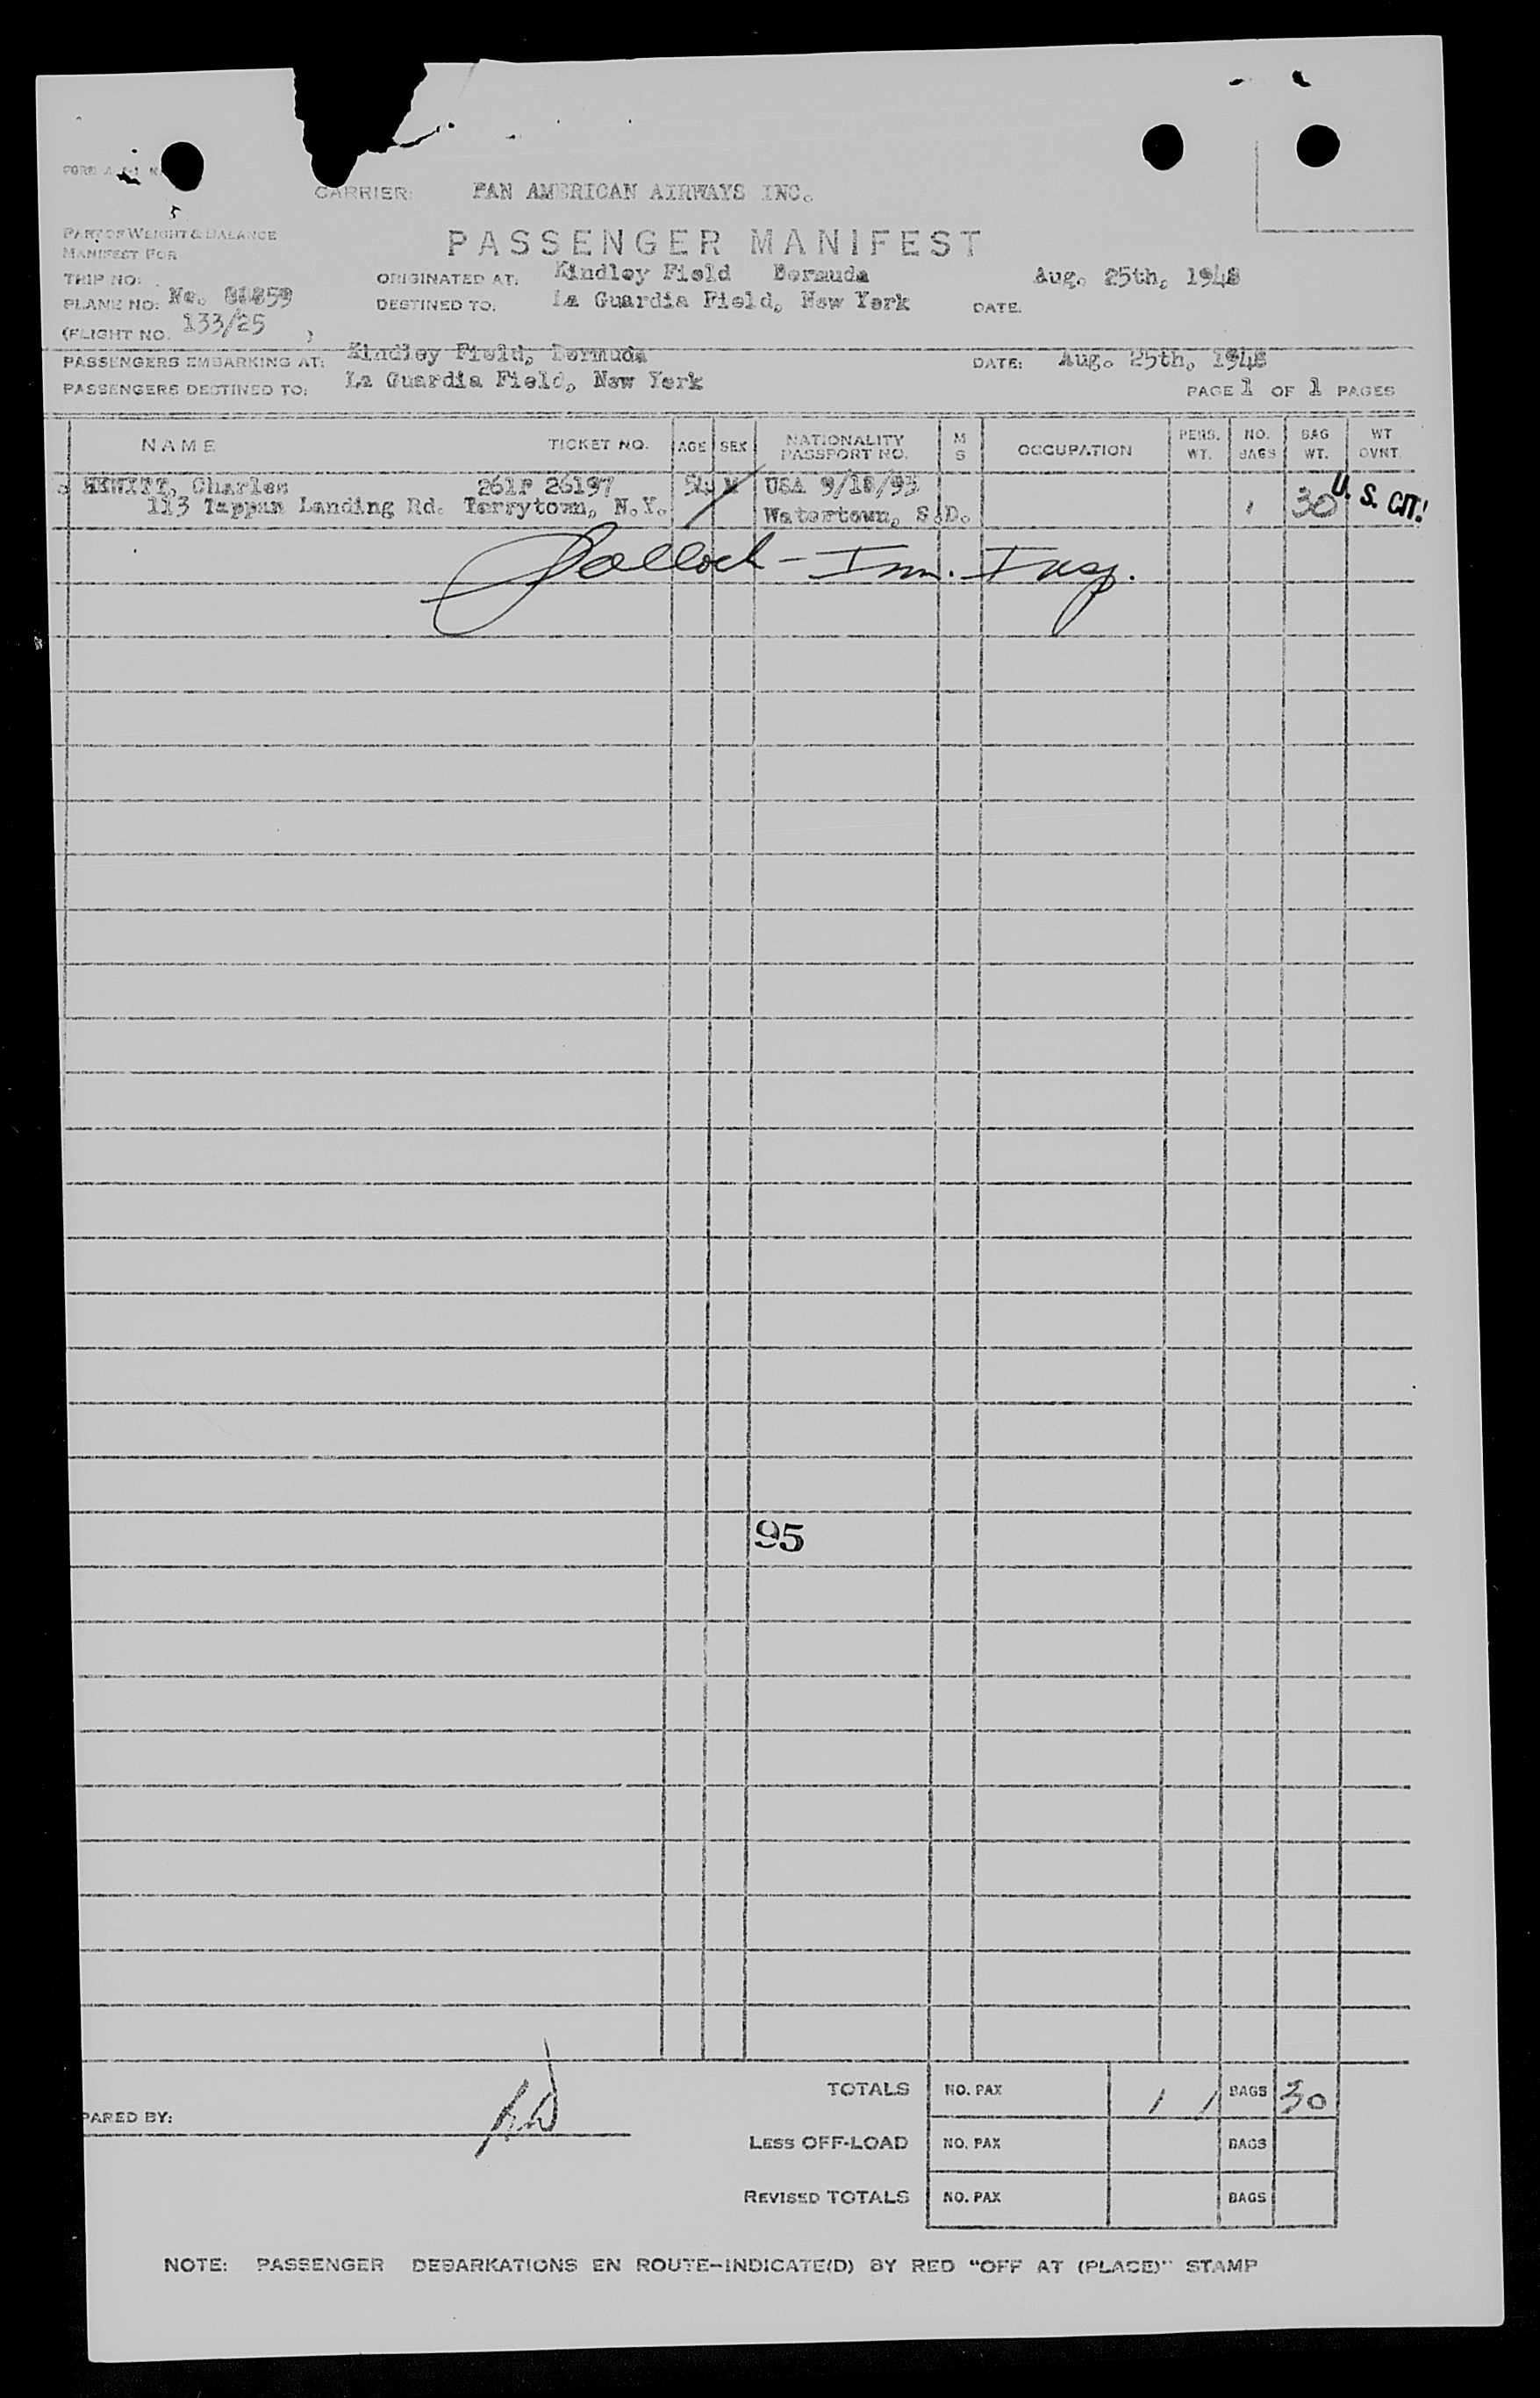 FORM
CARRIER: PAN AMERICAN AIRWAYS INC.
PART OF WEIGHT & BALANCE
MANIFEST FOR
PASSENGER MANIFEST
TRIP NO:
ORIGINATED AT: Kindley Field Bermuda
Aug. 25th, 1948
PLANE NO: No.
DESTINED TO: La Guardia Field, New York
DATE:
(FLIGHT NO. 133/25 )
PASSENGERS EMBARKING AT: Kindley Field, Bermuda
DATE: Aug. 25th, 1948
PASSENGERS DESTINED TO: La Guardia Field, New York
PAGE 1 OF 1 PAGES
NAME TICKET NO. AGE SEX NATIONALITY PASSPORT NO. M S OCCUPATION PERS. WT. NO. BAGS BAG WT. WT OVNT.
HEWITT, Charles 261P 26197 54 M USA 9/18/93 1 30 U. S. CIT.
113 Tappan Landing Rd. Terrytown, N.Y. Watertown, S.D.
Pollock - Imm. Insp.
95
TOTALS NO. PAX 1 1 BAGS 30
PARED BY:
LESS OFF-LOAD NO. PAX BAGS
REVISED TOTALS NO. PAX BAGS
NOTE: PASSENGER DEBARKATIONS EN ROUTE-INDICATE(D) BY RED "OFF AT (PLACE)" STAMP